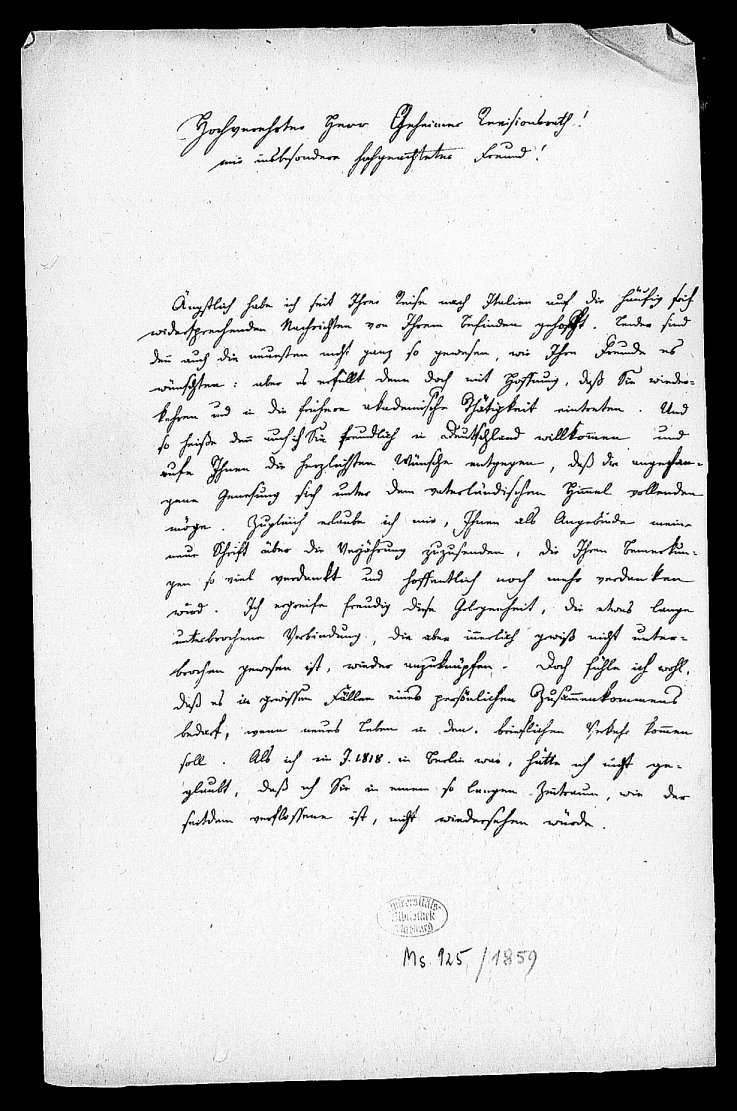 Hochverehrter Herr Geheimer Revisionsrath!
mir insbesondere hochgeachteter Freund!
Ängstlich habe ich seit Ihrer Reise nach Italien auf die häufig sich
widersprechenden Nachrichten von Ihrem Befinden gehofft. Leider sind
denn auch die neuesten nicht ganz so gewesen, wie Ihre Freunde es
wünschten: aber es erfüllt denn doch mit Hoffnung, daß Sie wieder-
kehren und in die frühere akademische Thätigkeit eintreten. Und
so heiße denn auch ich Sie freundlich in Deutschland willkommen und
rufe Ihnen die herzlichsten Wünsche entgegen, daß die angefan-
gene Genesung sich unter dem vaterländischen Himmel vollenden
möge. Zugleich erlaube ich mir, Ihnen als Angebinde meine
neue Schrift über die Verjährung zuzusenden, die Ihren Bemerkun-
gen so viel verdankt und hoffentlich noch mehr verdanken
wird. Ich ergreife freudig diese Gelegenheit, die etwas lange
unterbrochene Verbindung, die aber innerlich gewiß nicht unter-
brochen gewesen ist, wieder anzuknüpfen. Doch fühle ich wohl,
daß es in gewissen Fällen eines persönlichen Zusammenkommens
bedarf, wenn neues Leben in den brieflichen Verkehr kommen
soll. Als ich im J. 1818. in Berlin war, hätte ich nicht ge-
glaubt, daß ich Sie in einem so langen Zeitraum, wie der
seitdem verflossene ist, nicht wiedersehen würde.
Universitäts-
Bibliothek
Marburg
Ms. 925/1859